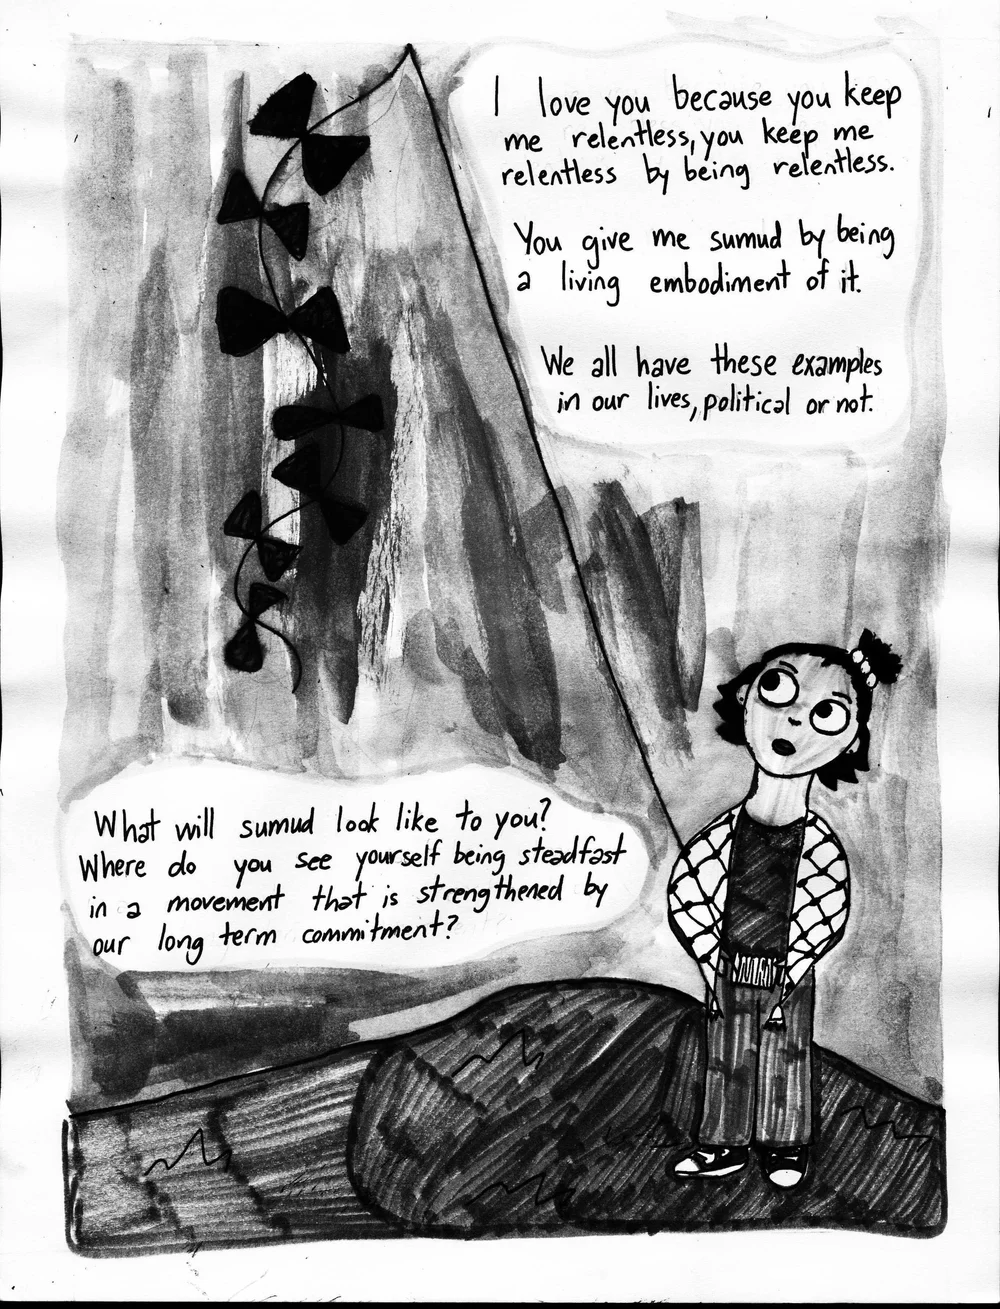 I love you because you keep
me relentless, you keep me
relentless by being relentless.
You give me sumud by being
a living embodiment of it.
We all have these examples
in our lives, political or not.
What will sumud look like to you?
Where do you see yourself being steadfast
in a movement that is strengthened by
our long term commitment?